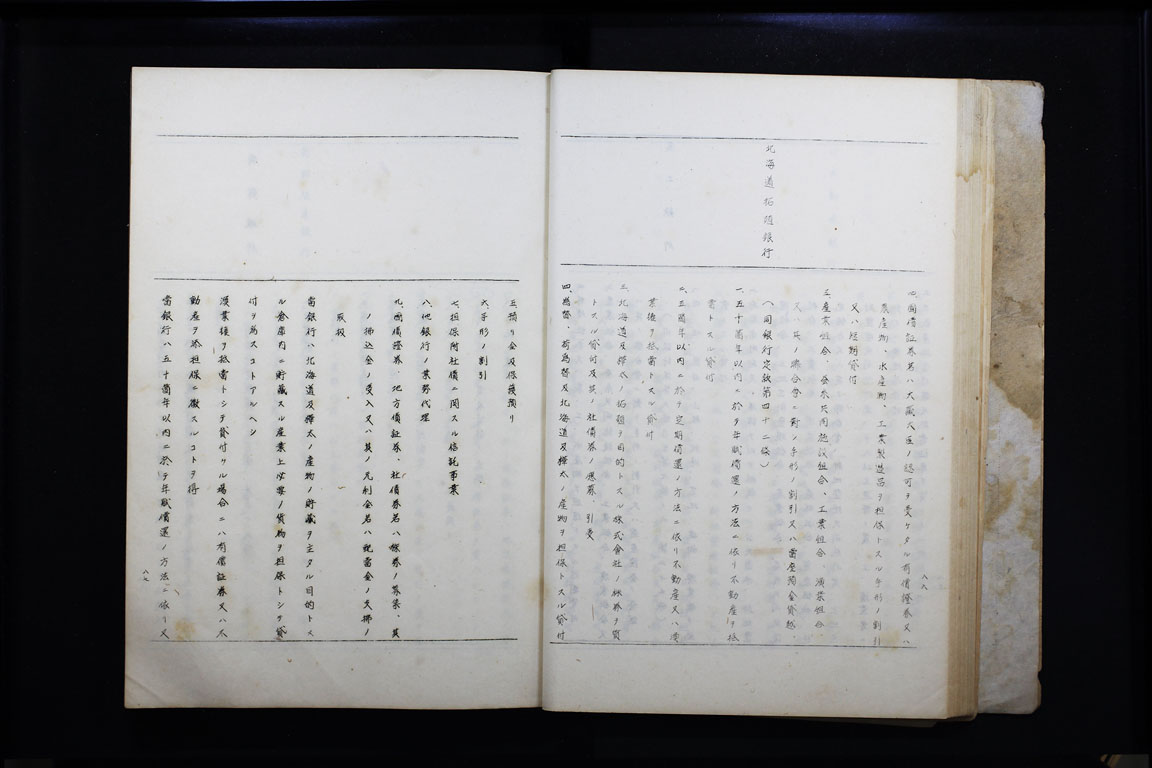 四、國債証券若ハ大藏大臣ノ認可ヲ受ケタル有價證券又ハ
農産物、水産物、工業製造品ヲ担保トスル手形ノ割引
又ハ短期貸付
五、産業組合、産業組合、工業組合、漁業組合、
又ハ其ノ聯合會ニ對シ手形ノ割引又ハ當座預金貸越、
北海道拓殖銀行
(同銀行定款第四十二條)
一、五十箇年以内ニ於テ年賦償還ノ方法ニ依リ不動産ヲ抵
當トスル貸付
二、五箇年以内ニ於テ定期償還ノ方法ニ依リ不動産又ハ漁
業権ヲ抵當トスル貸付
三、北海道及樺太ノ拓殖ヲ目的トスル株式會社ノ株券ヲ質
トスル貸付及其ノ社債券ノ應募、引受
四、為替、荷為替及北海道及樺太ノ産物ヲ担保トスル貸付
五、預リ金及保護預リ
六、手形ノ割引
七、担保附社債ニ関スル信託事業
八、他銀行ノ業務代理
九、國債證券、地方債証券、社債券若ハ株券ノ募集、其
ノ拂込金ノ受入又ハ其ノ元利金若ハ配當金ノ支拂ノ
取扱
當銀行ハ北海道及樺太ノ産物ノ貯藏ヲ主タル目的トス
ル倉庫内ニ貯藏スル産業上必要ノ貨物ヲ担保トシテ貸
付ヲ為スコトアルヘシ
漁業権ヲ抵當トシテ貸付クル場合ニハ有價証券又ハ不
動産ヲ添担保ニ徴スルコトヲ得
當銀行ハ五十箇年以内ニ於テ年賦償還ノ方法ニ依リ又